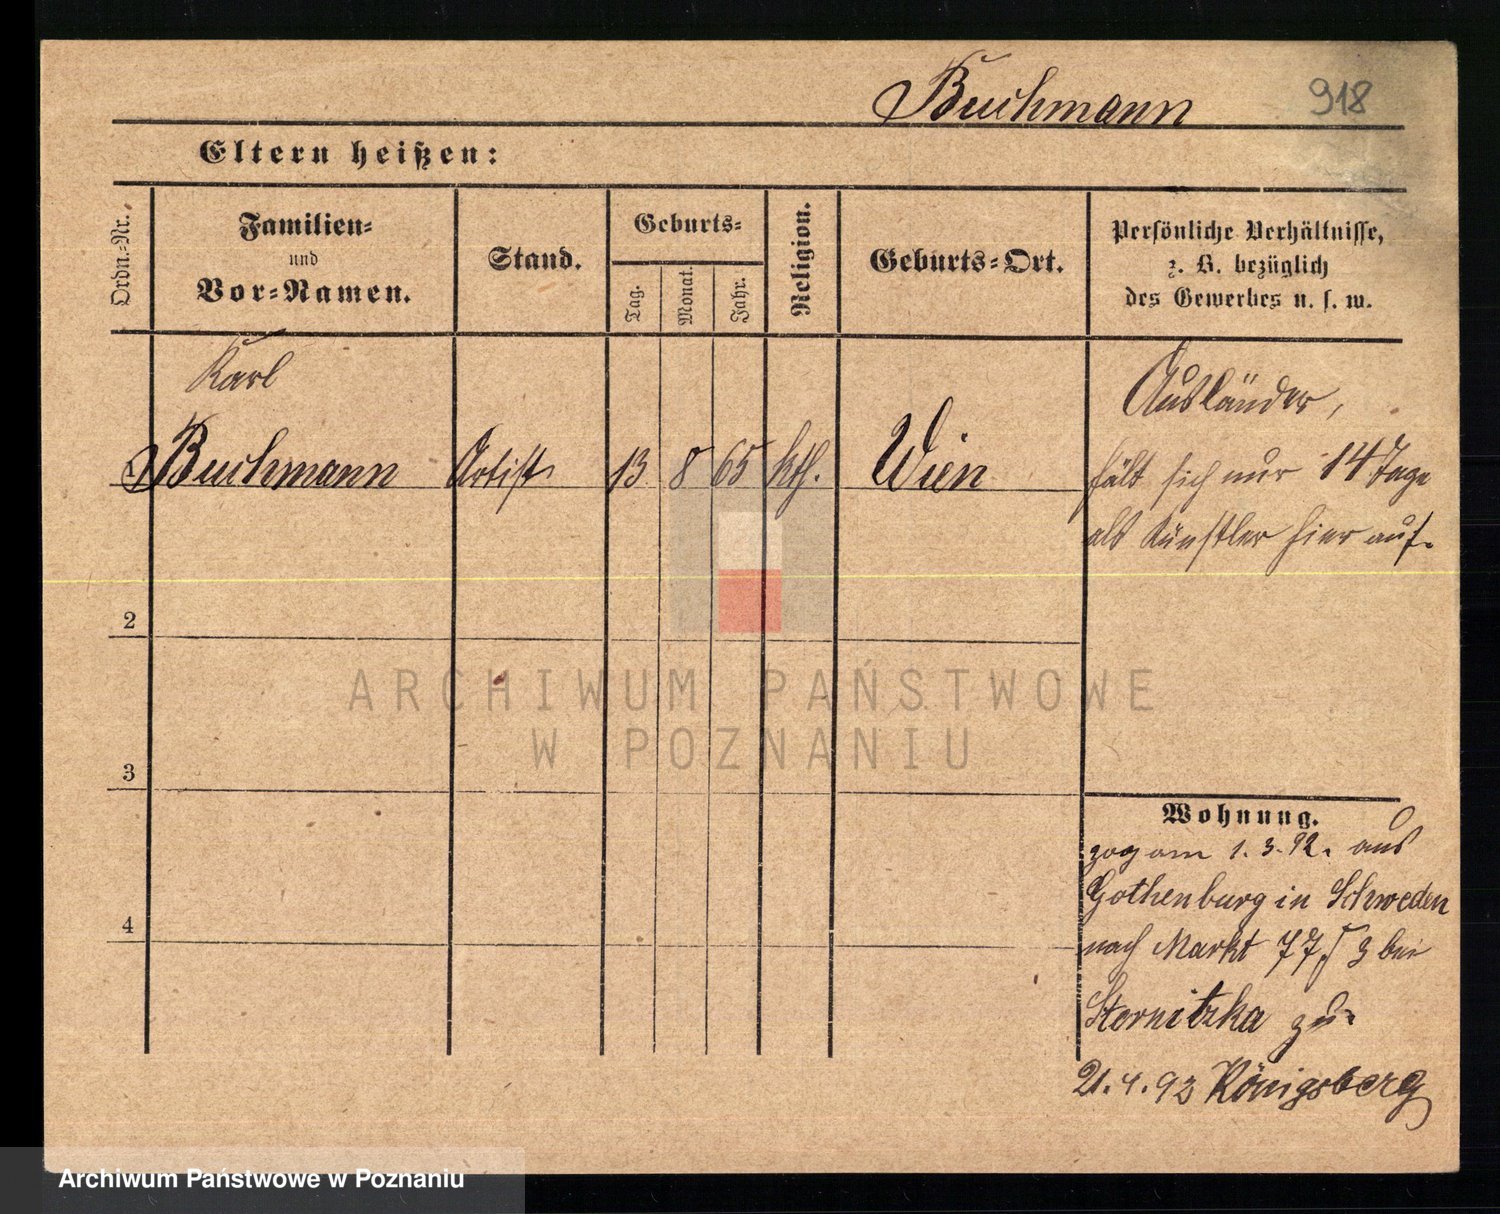 Buchmann
918
Eltern heißen:
Ordn.-Nr.
Familien-
und
Vor-Namen.
Stand.
Geburts-
Tag.
Monat.
Jahr.
Religion.
Geburts-Ort.
Persönliche Verhältnisse,
z. B. bezüglich
des Gewerbes u. s. w.
Karl
1 Buchmann Artist 13 8 65 kth. Wien
Ausländer,
hält sich nur 14 Tage
als Künstler hier auf.
2
3
4
Wohnung.
zog am 1. 3. 92. aus
Gothenburg in Schweden
nach Markt 77, 3 bei
Sternitzka zu.
21. 4. 92 Königsberg
ARCHIWUM PAŃSTWOWE
W POZNANIU
Archiwum Państwowe w Poznaniu